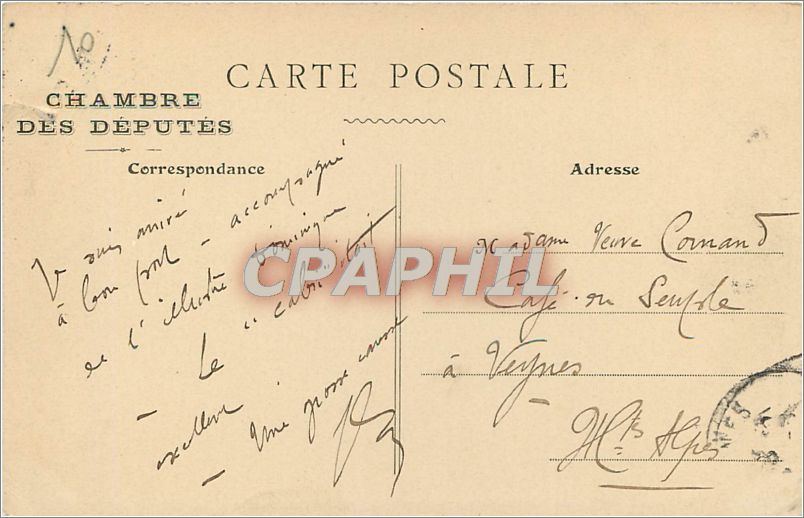 10
CARTE POSTALE
CHAMBRE
DES DÉPUTÉS
Correspondance
Je suis arrivé
à bon port - accompagné
de l'illustre Dominique
- Le "cabri" était
excellent
- Une grosse
Adresse
Madame Veuve Cornand
Café du Peuple
à Veynes
Htes Alpes
CPAPHIL